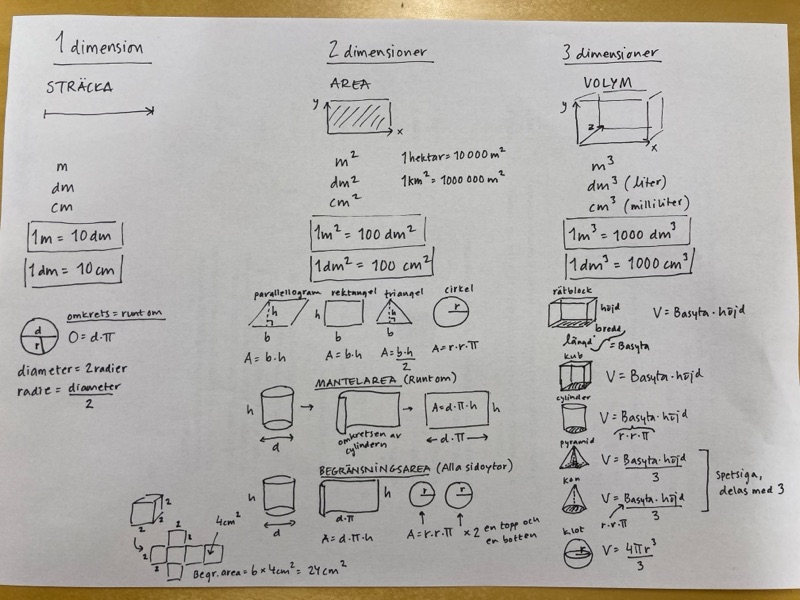 1 dimension
STRÄCKA
m
dm
cm
1m = 10 dm
1dm = 10 cm
d
r
omkrets = runt om
O = d·π
diameter = 2 radier
radie = diameter
2
2 dimensioner
AREA
y
x
m²
dm²
cm²
1 hektar = 10 000 m²
1 km² = 1000 000 m²
1m² = 100 dm²
1dm² = 100 cm²
parallellogram rektangel triangel cirkel
h h h r
b b b
A = b·h A = b·h A = b·h A = r·r·π
2
MANTELAREA (Runt om)
h
d
omkretsen av
cylindern
A = d·π·h h
d·π
BEGRÄNSNINGSAREA (Alla sidoytor)
h
d
h
d·π
r r
A = d·π·h
A = r·r·π × 2 en topp och
en botten
2
2
2
2
2 2
2
4cm²
Begr.area = 6 × 4cm² = 24 cm²
3 dimensioner
VOLYM
y
z
x
m³
dm³ (liter)
cm³ (milliliter)
1m³ = 1000 dm³
1dm³ = 1000 cm³
rätblock
höjd
bredd
längd = Basyta
V = Basyta·höjd
kub
V = Basyta·höjd
cylinder
V = Basyta·höjd
r·r·π
pyramid
V = Basyta·höjd
3
kon
V = Basyta·höjd
3
r·r·π
Spetsiga,
delas med 3
klot
r
V = 4πr³
3